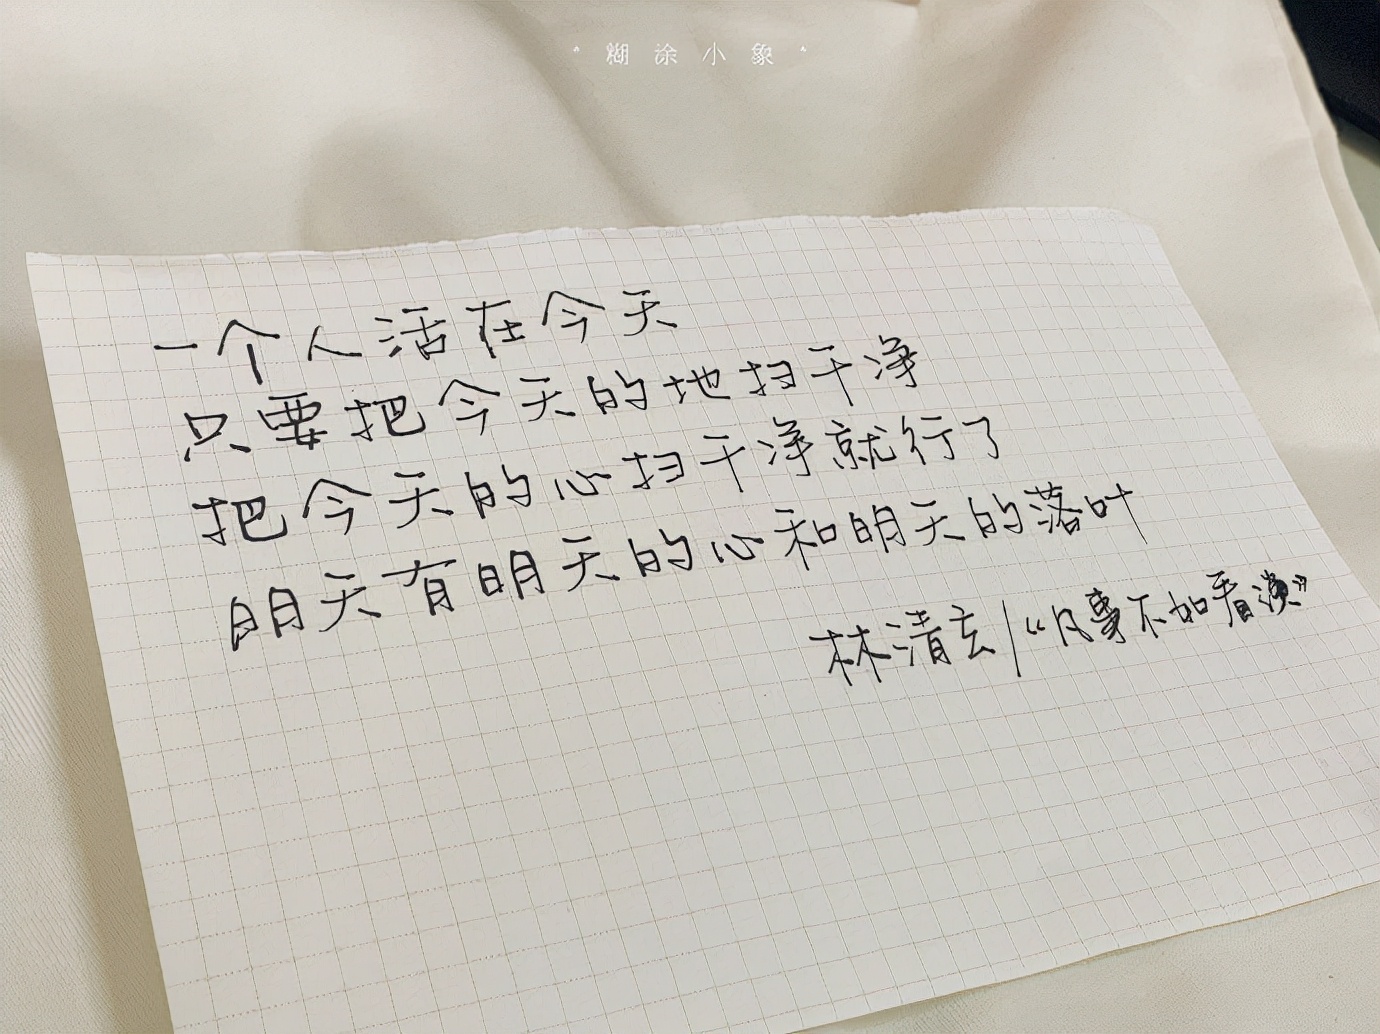 糊涂小象
一个人活在今天
只要把今天的地扫干净
把今天的心扫干净就行了
明天有明天的心和明天的落叶
林清玄/“凡事不如看淡”